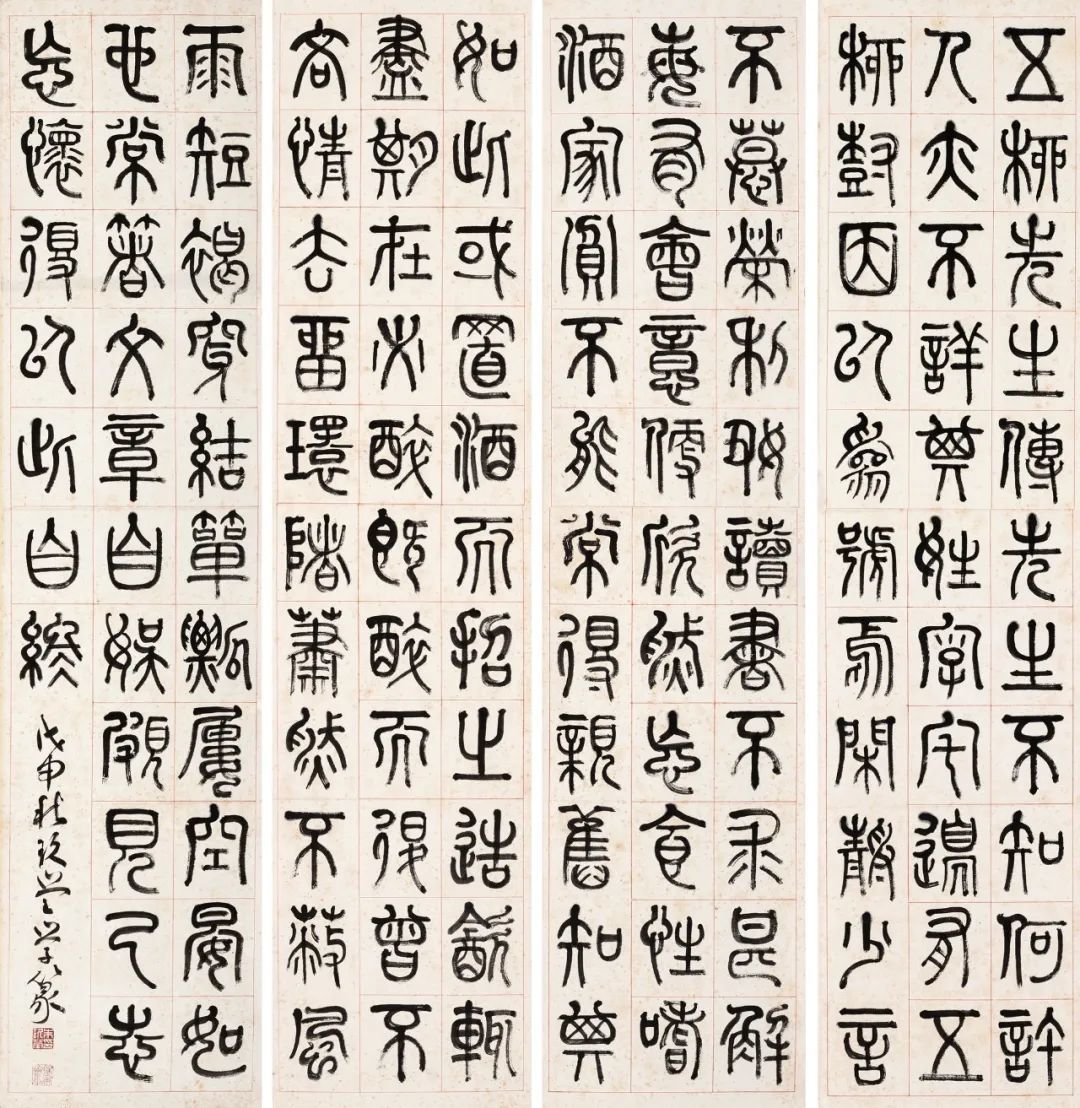 五柳先生傳先生不知何許
人亦不詳其姓字宅邊有五
柳樹因以為號焉閑靜少言
不慕榮利好讀書不求甚解
每有會意便欣然忘食性嗜
酒家貧不能常得親舊知其
如此或置酒而招之造飲輒
盡期在必醉既醉而退曾不
吝情去留環堵蕭然不蔽風
雨短褐穿結簞瓢屢空晏如
也常著文章自娛頗見己志
忘懷得以此自終
戊申秋玖瑩學篆